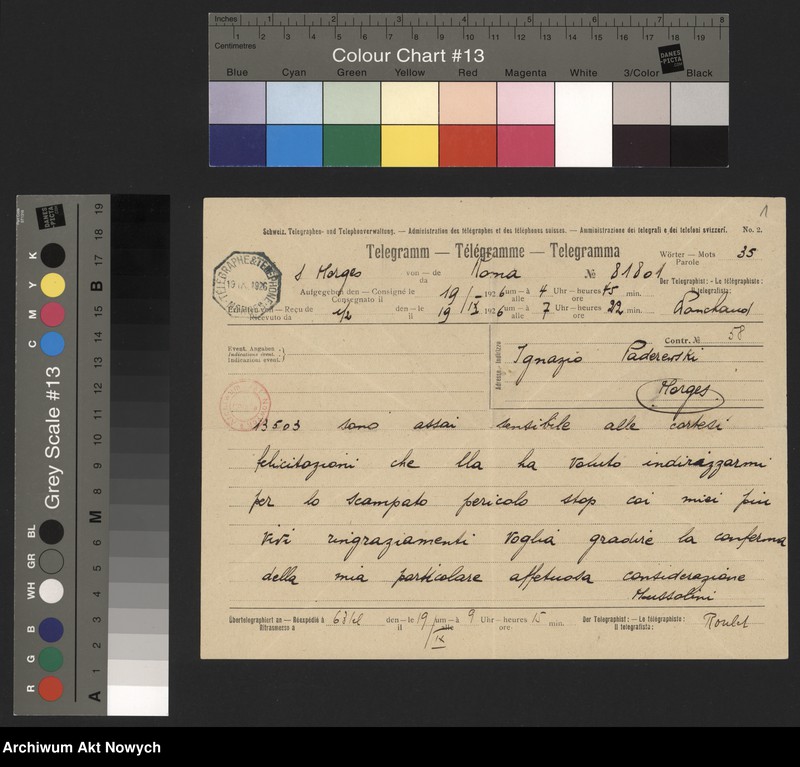 Inches 1 2 3 4 5 6 7 8
Centimetres 1 2 3 4 5 6 7 8 9 10 11 12 13 14 15 16 17 18 19
Colour Chart #13
DANES-PICTA.COM
Blue Cyan Green Yellow Red Magenta White 3/Color Black
Grey Scale #13
DANES-PICTA.COM
C M Y K
R G B WH GR BL
A 1 2 3 4 5 6 M 8 9 10 11 12 13 14 15 B 17 18 19
1
Schweiz. Telegraphen- und Telephonverwaltung. — Administration des télégraphes et des téléphones suisses. — Amministrazione dei telegrafi e dei telefoni svizzeri. No. 2.
Telegramm — Télégramme — Telegramma
Wörter — Mots 35
Parole
TELEGRAPHE & TELEPHONE
19 IX. 1926
MORGES
Morges von — de Roma № 81801
da
Der Telegraphist: — Le télégraphiste:
Il telegrafista:
Aufgegeben den — Consigné le 19/IX 1926 um — à 4 Uhr — heures 45 min.
Consegnato il alle ore
Erhalten von — Reçu de den — le 19/IX 1926 um — à 7 Uhr — heures 22 min.
Ricevuto da il alle ore
Ranchaud
Event. Angaben
Indications évent.
Indicazioni event.
Adresse - Indirizzo
Contr. № 58
Ignazio Paderewski
Morges
13503 sono assai sensibile alle cortesi
felicitazioni che Ella ha voluto indirizzarmi
per lo scampato pericolo stop coi miei piu
vivi ringraziamenti voglia gradire la conferma
della mia particolare affetuosa considerazione
Mussolini
Übertelegraphiert an — Réexpédié à den — le 19/IX um — à 9 Uhr — heures 15 min.
Ritrasmesso a il alle ore
Der Telegraphist: — Le télégraphiste:
Il telegrafista:
Roulet
Archiwum Akt Nowych